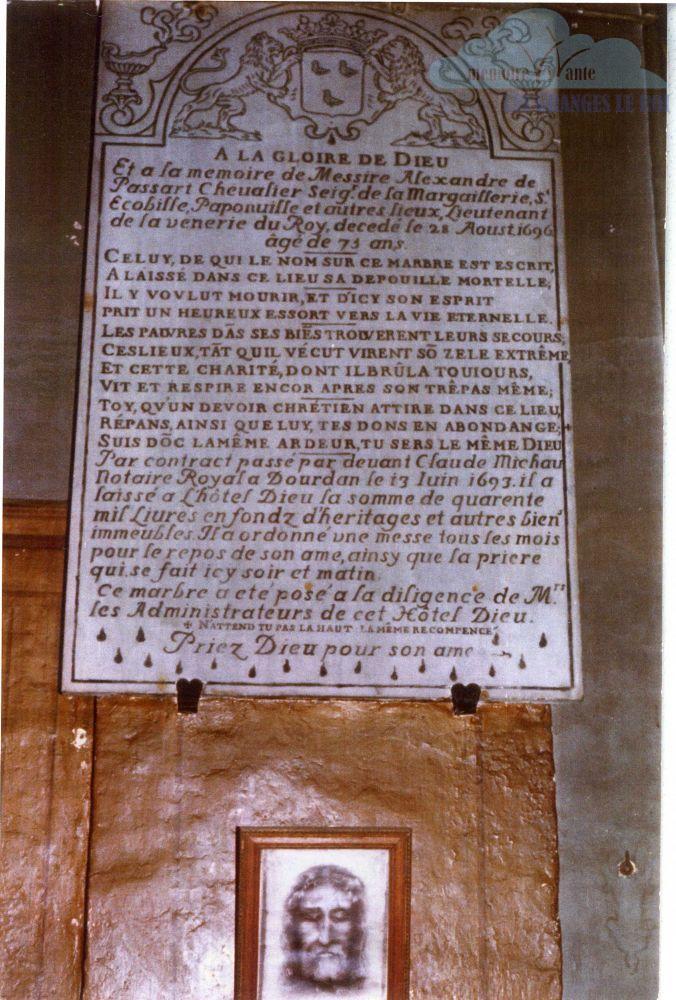 mémoire vivante
A LA GLOIRE DE DIEU
Et a la memoire de Messire Alexandre de
Passart Chevalier Seigr. de la Margaillerie, St
Ecobille, Paponville et autres lieux, Lieutenant
de la venerie du Roy, decedé le 28 Aoust 1696
âgé de 73 ans.
CELUY, DE QUI LE NOM SUR CE MARBRE EST ESCRIT,
A LAISSÉ DANS CE LIEU SA DEPOUILLE MORTELLE;
IL Y VOVLUT MOURIR, ET D'ICY SON ESPRIT
PRIT UN HEUREUX ESSORT VERS LA VIE ETERNELLE.
LES PAUVRES DĀS SES BIĒS TROUVERENT LEURS SECOURS;
CES LIEUX, TĀT QUIL VÉCUT VIRENT SŌ ZELE EXTRÊME
ET CETTE CHARITÉ, DONT IL BRÛLA TOUIOURS,
VIT ET RESPIRE ENCOR APRES SON TRÊPAS MÊME;
TOY, QU'UN DEVOIR CHRÉTIEN ATTIRE DANS CE LIEU,
RÉPANS, AINSI QUE LUY, TES DONS EN ABONDANGE; +
SUIS DŌC LA MÊME ARDEUR, TU SERS LE MÊME DIEU
Par contract passé par devant Claude Michau
Notaire Royal a Dourdan le 13 Iuin 1693. il a
laissé a L'hôtel Dieu la somme de quarente
mil Livres en fondz d'heritages et autres bien
immeubles. Il a ordonné une messe tous les mois
pour le repos de son ame, ainsy que la priere
qui se fait icy soir et matin.
Ce marbre a eté posé a la diligence de Mrs
les Administrateurs de cet Hôtel Dieu.
+ N'ATTEND TU PAS LA HAUT LA MÊME RECOMPENCE
Priez Dieu pour son ame